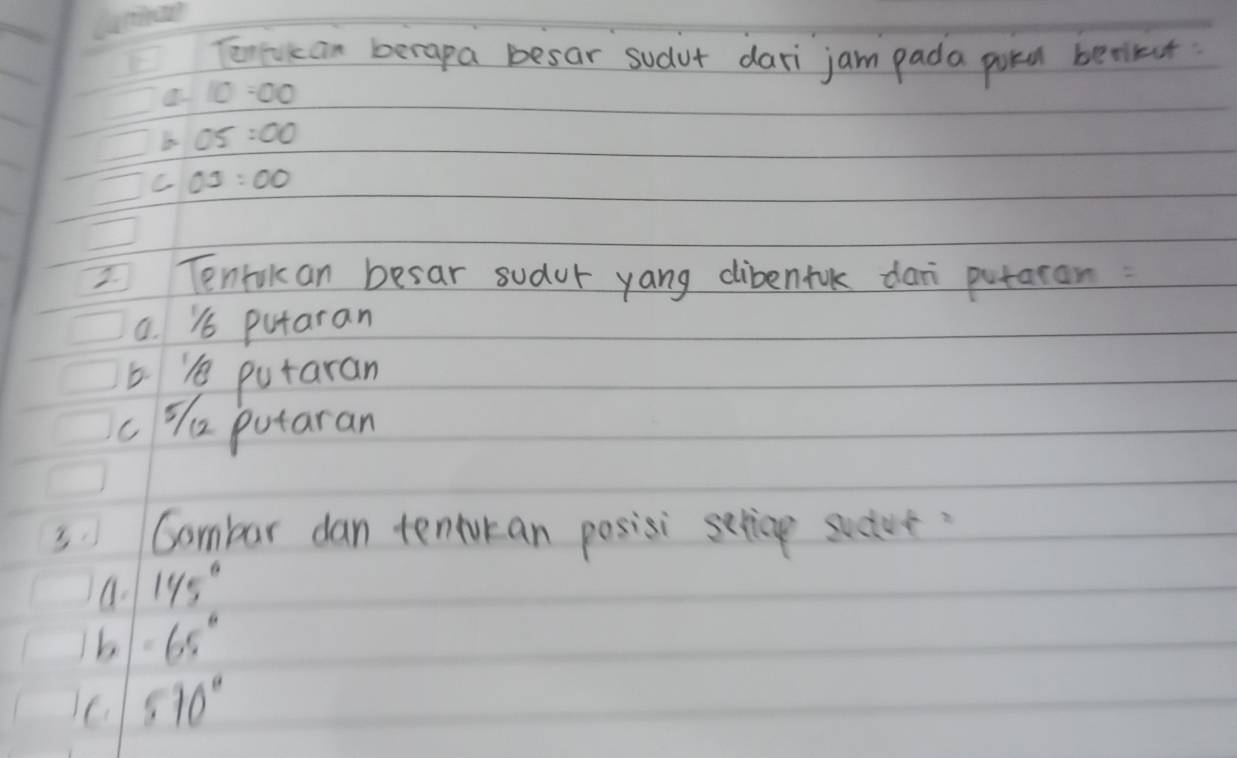 1. Tentukan berapa besar sudut dari jam pada pukul berikut:
a. 10:00
b. 05:00
c. 03:00
2. Tentukan besar sudut yang dibentuk dari putaran =
a. 1/6 putaran
b. 1/8 putaran
c 5/12 putaran
3. Gambar dan tentukan posisi setiap sudut:
a. 145°
b -65°
c. 570°